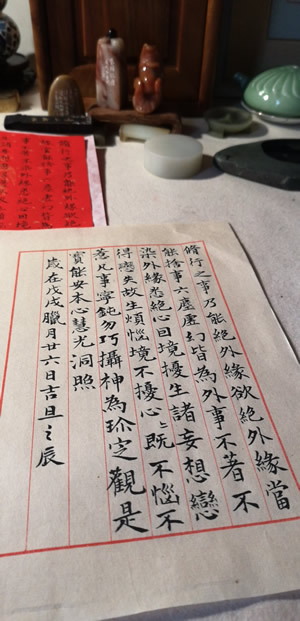 脩行之事乃能絕外緣欲絕外緣當
能括事六塵虛幻皆為外事不著不
染外緣悉絕心回境擾生諸妄想戀
得戀失故生煩惱境不擾心〻既不惱不
惹凡事寧鈍勿巧攝神為玠定觀是
實能安本心慧光洞照
歲在戊戌臘月廿六日吉旦之辰